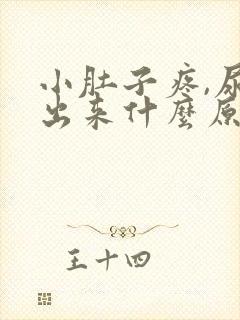 小肚子疼,尿
出来什麼原
王十四